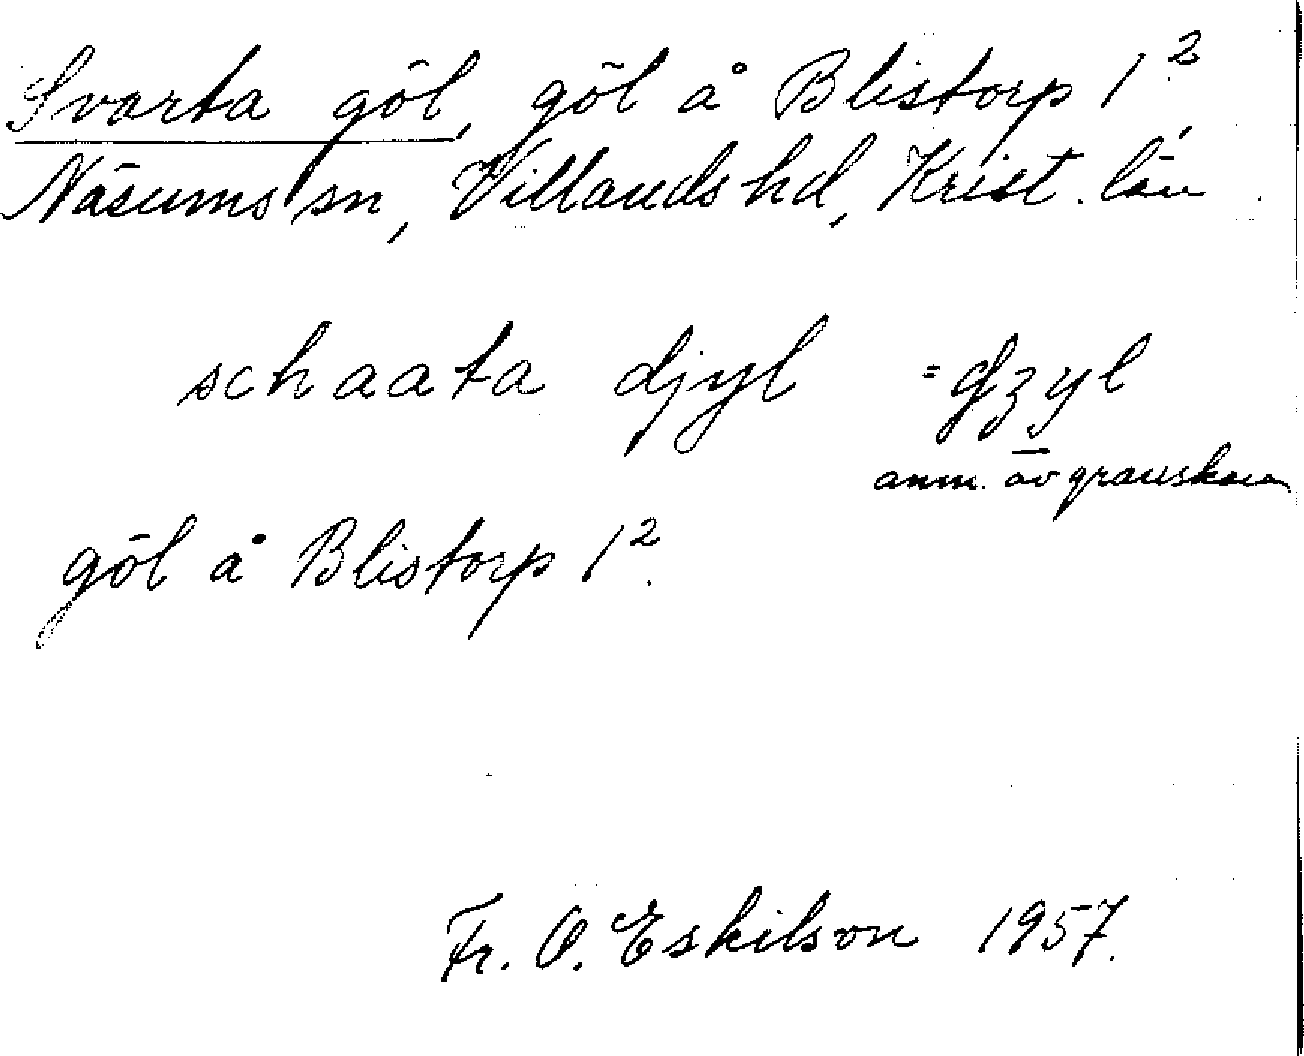 Svarta göl, göl å Blistorp 1²,
Näsums sn, Villands hd, Krist. län.
schaata djyl = dzyl
anm. av granskaren
göl å Blistorp 1².
Fr. O. Eskilson 1957.